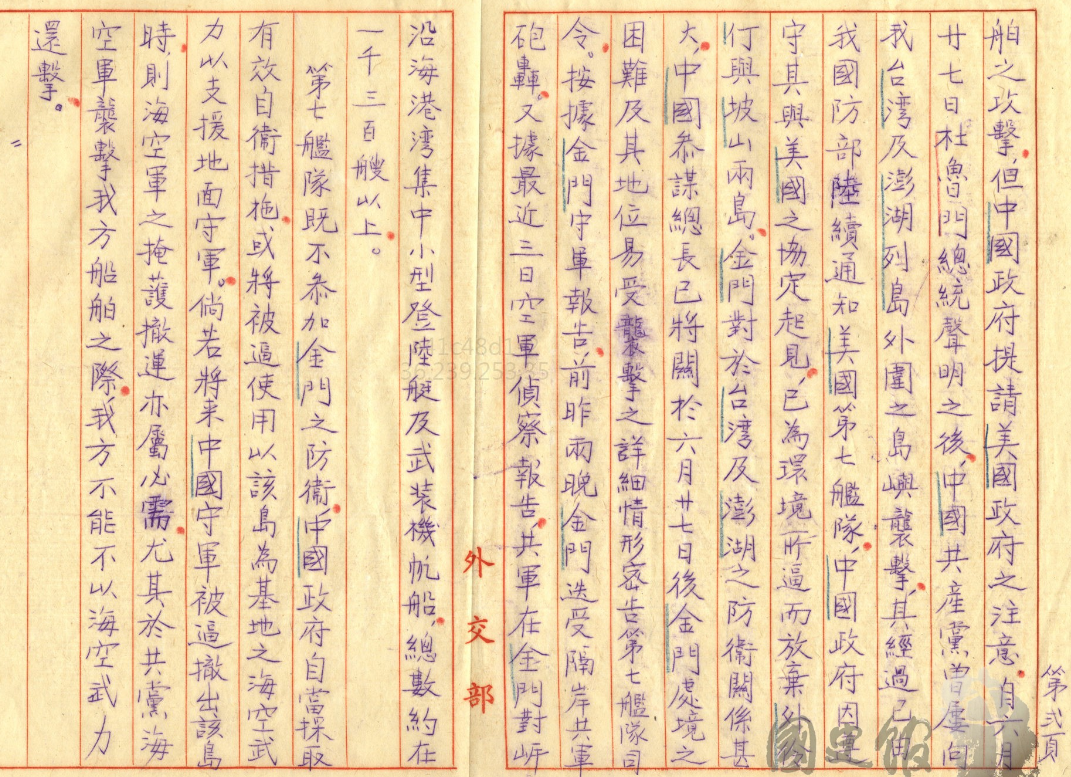 第弍頁
舶之攻擊,但中國政府提請美國政府之注意,自六月
廿七日杜魯門總統聲明之後,中國共產黨曾屢向
我台湾及澎湖列島外圍之島嶼襲擊,其經過已由
我國防部陸續通知美國第七艦隊,中國政府因遵
守其與美國之協定起見,已為環境所逼而放棄外伶
仃與坡山兩島。金門對於台湾及澎湖之防衞關係甚
大,中國叅謀總長已將關於六月廿七日後金門處境之
困難及其地位易受襲擊之詳細情形密告第七艦隊司
令。按據金門守軍報告前昨兩晚金門迭受隔岸共軍
砲轟。又據最近三日空軍偵察報告,共軍在金門對岍
沿海港湾集中小型登陸艇及武装機帆船,總數約在
一千三百艘以上。
第七艦隊既不叅加金門之防衞,中國政府自當採取
有效自衞措施,或將被逼使用以該島為基地之海空武
力以支援地面守軍。倘若將来中國守軍被逼撤出該島
時,則海空軍之掩護撤運亦屬必需,尤其於共黨海
空軍襲擊我方船舶之際,我方不能不以海空武力
還擊。〃
外交部
國史館